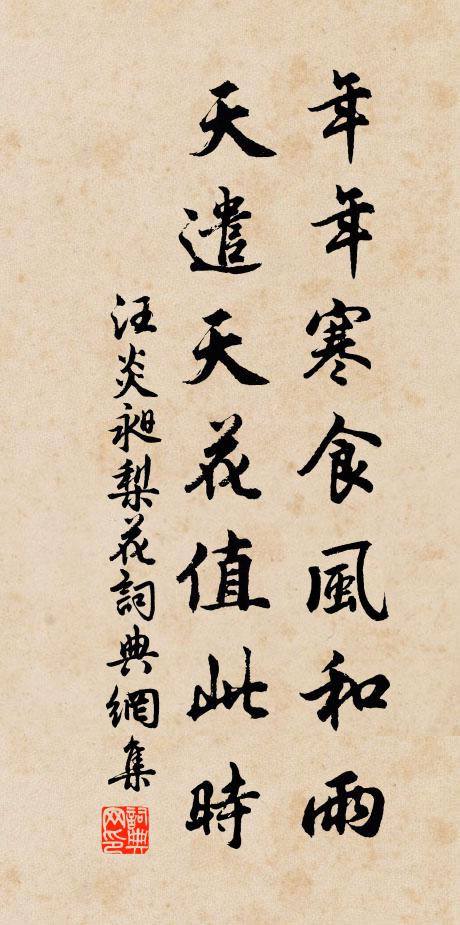 年年寒食風和雨
天遣天花值此時
汪炎昶梨花詞典網集
詞典網印